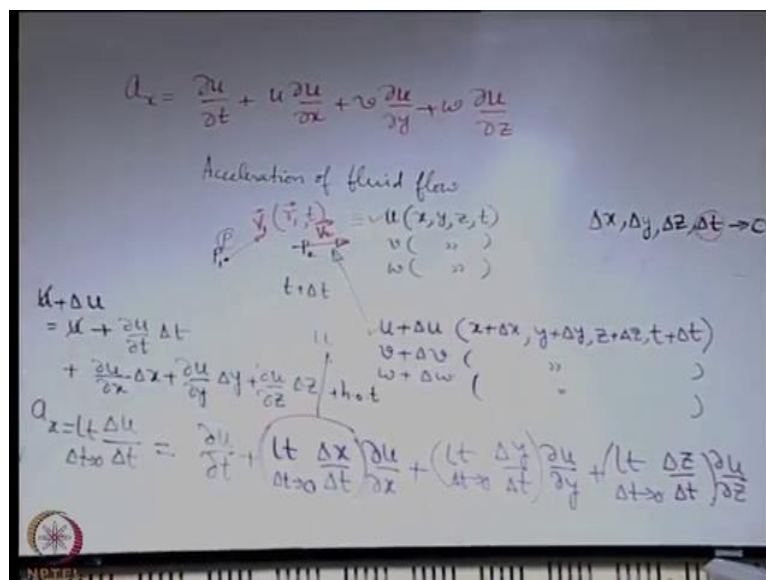 aₓ = ∂u/∂t + u ∂u/∂x + v ∂u/∂y + w ∂u/∂z
Acceleration of fluid flow
P₁ V⃗₁ (r⃗₁, t) = u(x, y, z, t)
P₂
v( " )
w( " )
Δx, Δy, Δz, Δt → 0
t+Δt
u+Δu
= u + ∂u/∂t Δt
+ ∂u/∂x Δx + ∂u/∂y Δy + ∂u/∂z Δz + h.o.t
u+Δu (x+Δx, y+Δy, z+Δz, t+Δt)
v+Δv ( " )
w+Δw ( " )
u
aₓ = lt Δt→0 Δu/Δt = ∂u/∂t + (lt Δt→0 Δx/Δt) ∂u/∂x + (lt Δt→0 Δy/Δt) ∂u/∂y + (lt Δt→0 Δz/Δt) ∂u/∂z
NPTEL